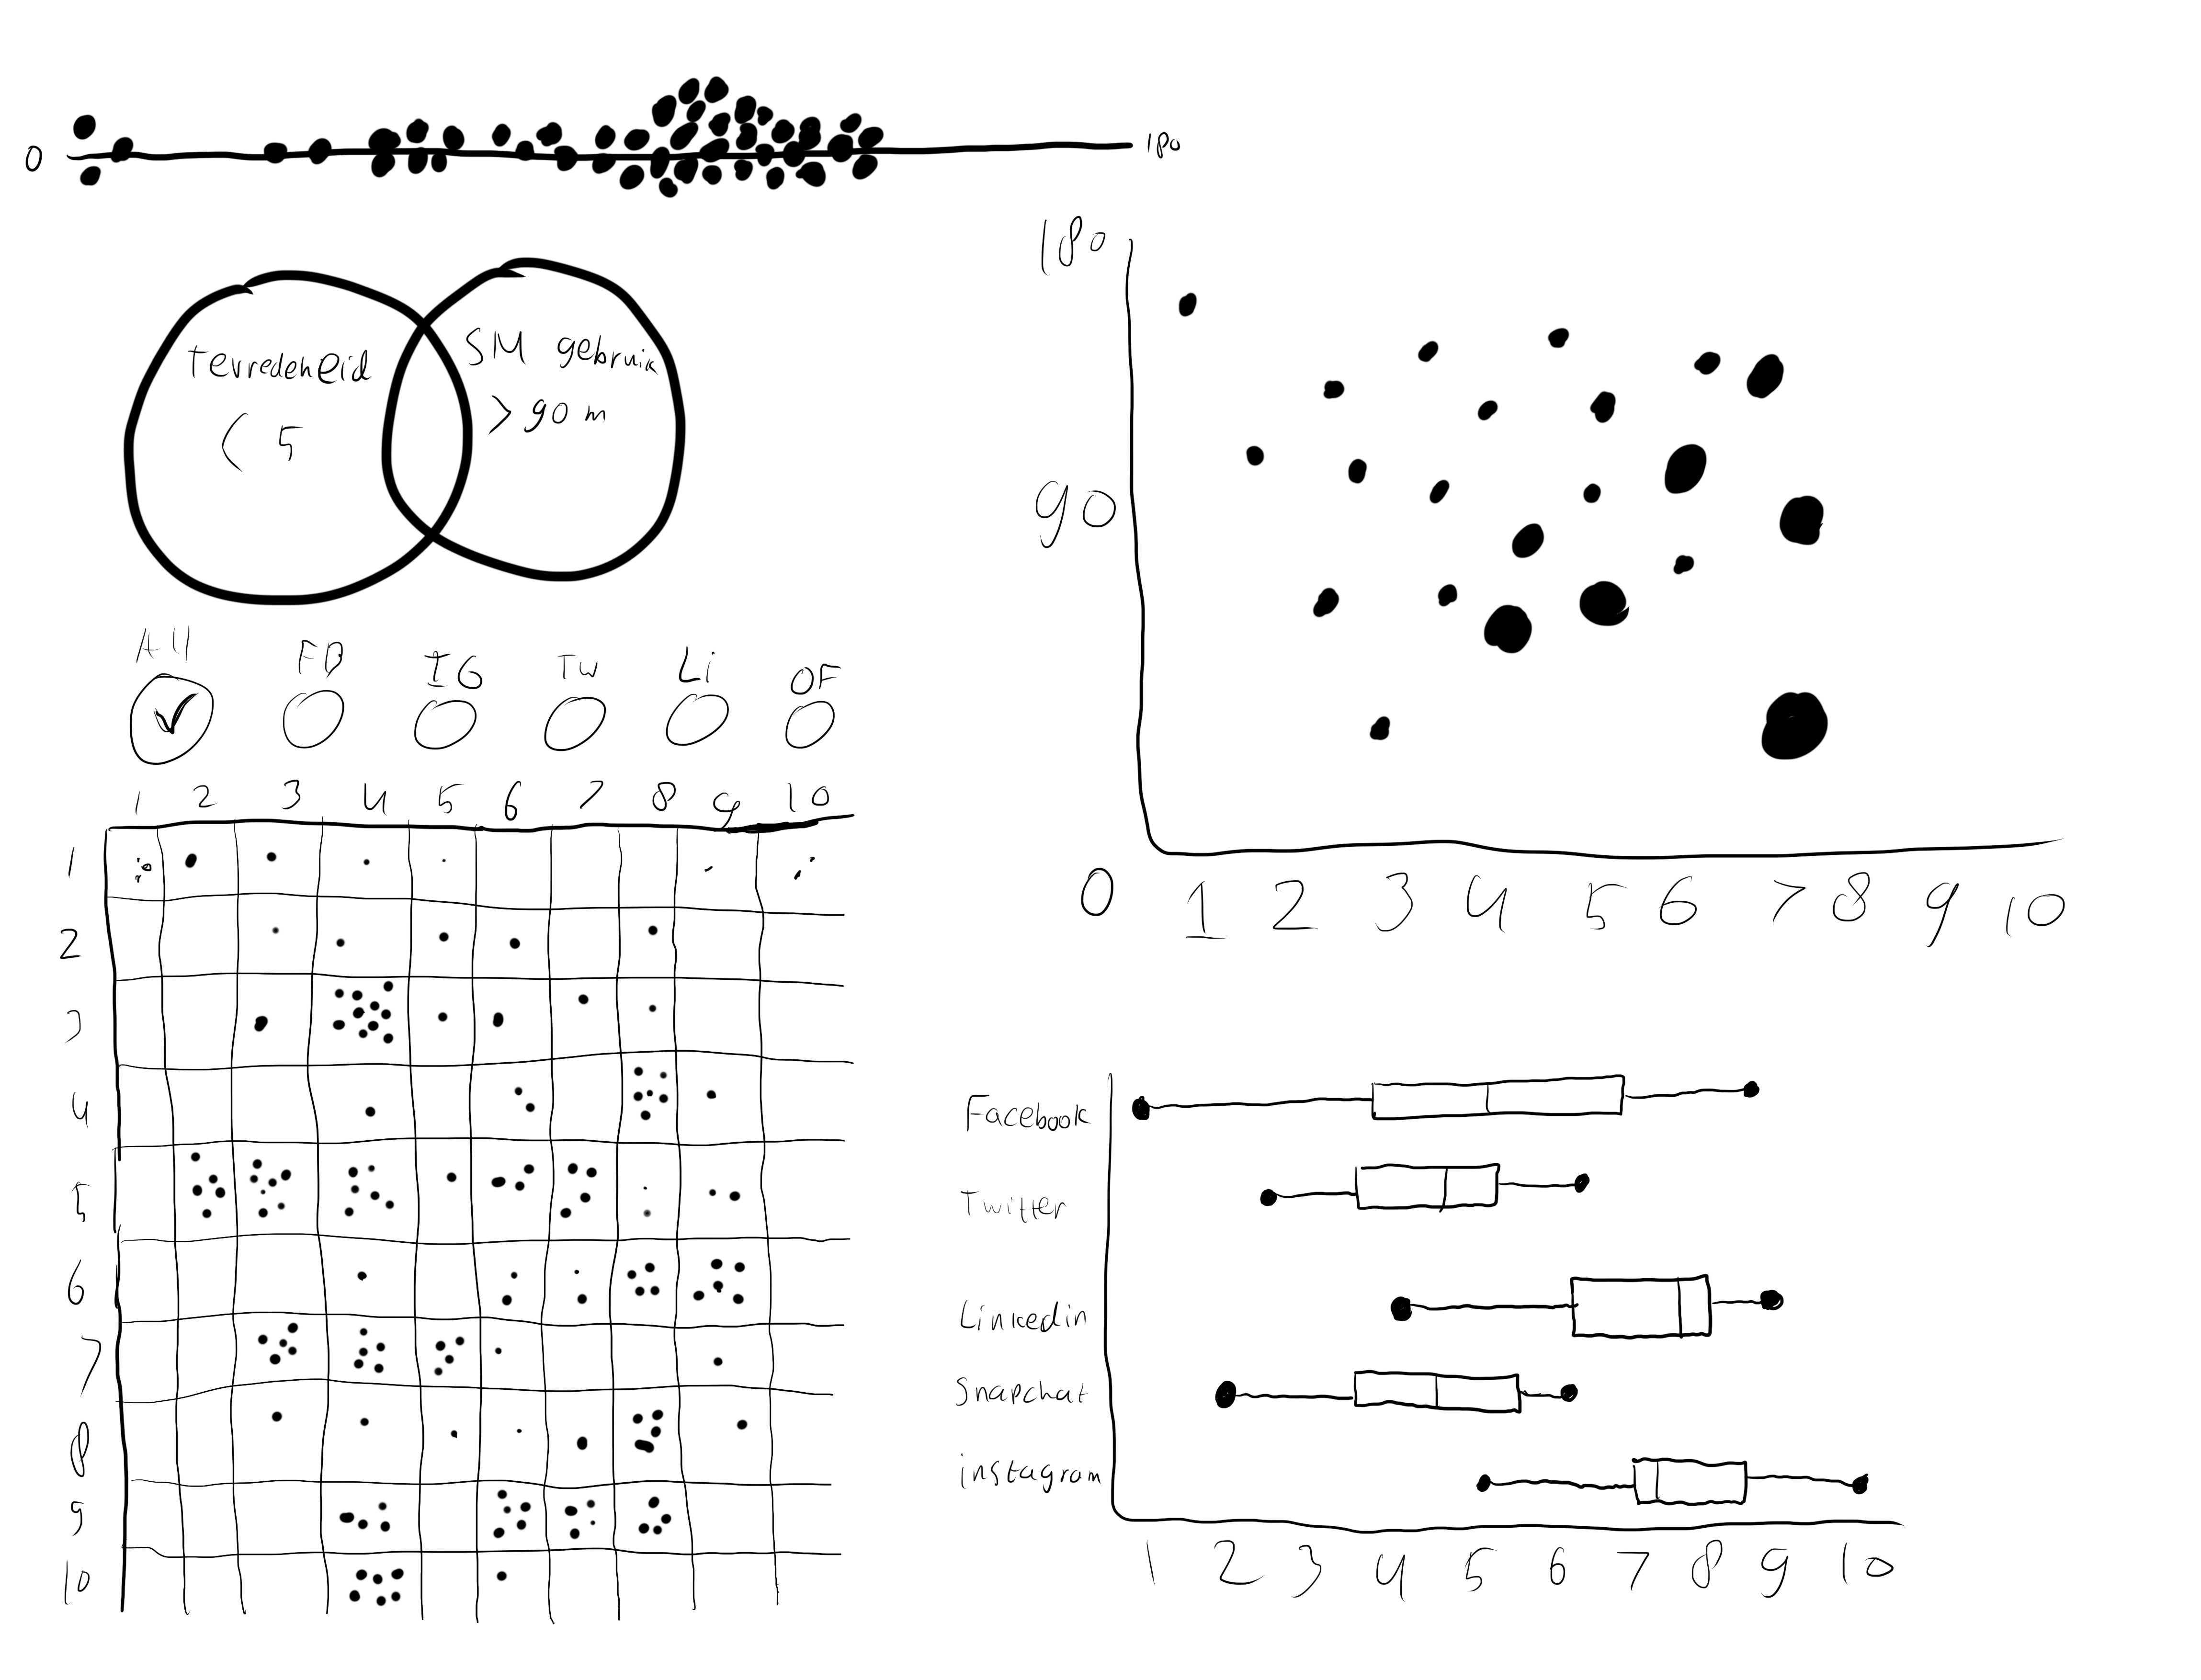 0 180
tevredenheid
< 5
SM gebruik
> 90 m
All FB IG TW Li OF
1 2 3 4 5 6 7 8 9 10
1
2
3
4
5
6
7
8
9
10
180
90
0 1 2 3 4 5 6 7 8 9 10
Facebook
Twitter
Linkedin
Snapchat
instagram
1 2 3 4 5 6 7 8 9 10